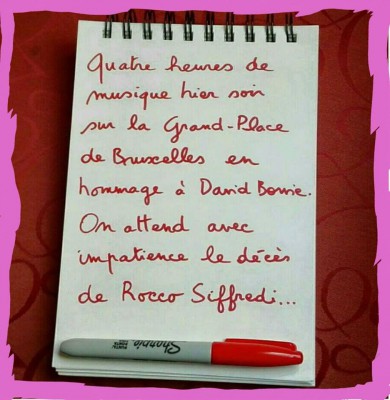 Quatre heures de
musique hier soir
sur la Grand-Place
de Bruxelles en
hommage à David Bowie.
On attend avec
impatience le décès
de Rocco Siffredi...
Sharpie